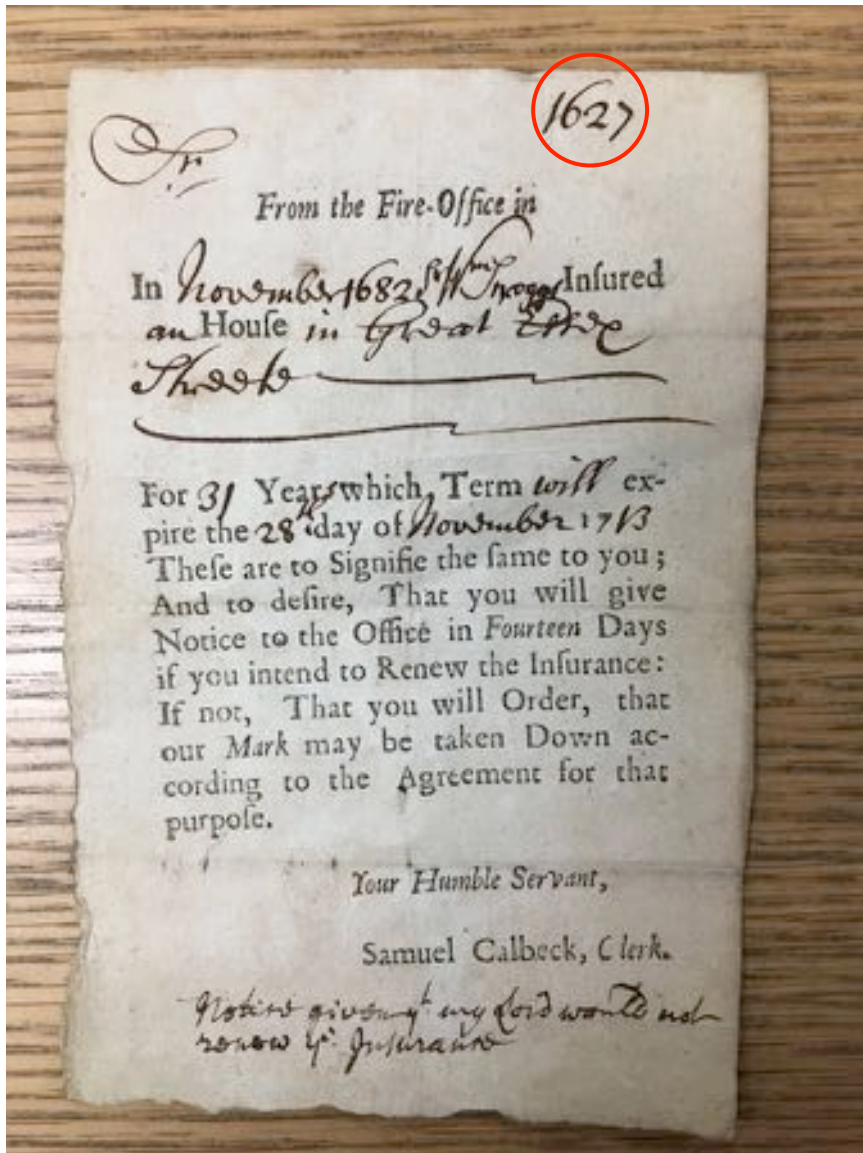 1627
Sr
From the Fire-Office in
In November 1682 Sr Wm Scroggs Inſured
an Houſe in Great Essex
Streete
For 31 Years which, Term will ex-
pire the 28th day of November 1713
Theſe are to Signifie the ſame to you;
And to deſire, That you will give
Notice to the Office in Fourteen Days
if you intend to Renew the Inſurance:
If not, That you will Order, that
our Mark may be taken Down ac-
cording to the Agreement for that
purpoſe.
Your Humble Servant,
Samuel Calbeck, Clerk.
Notice given yt my Lord would not
renew ye Insurance